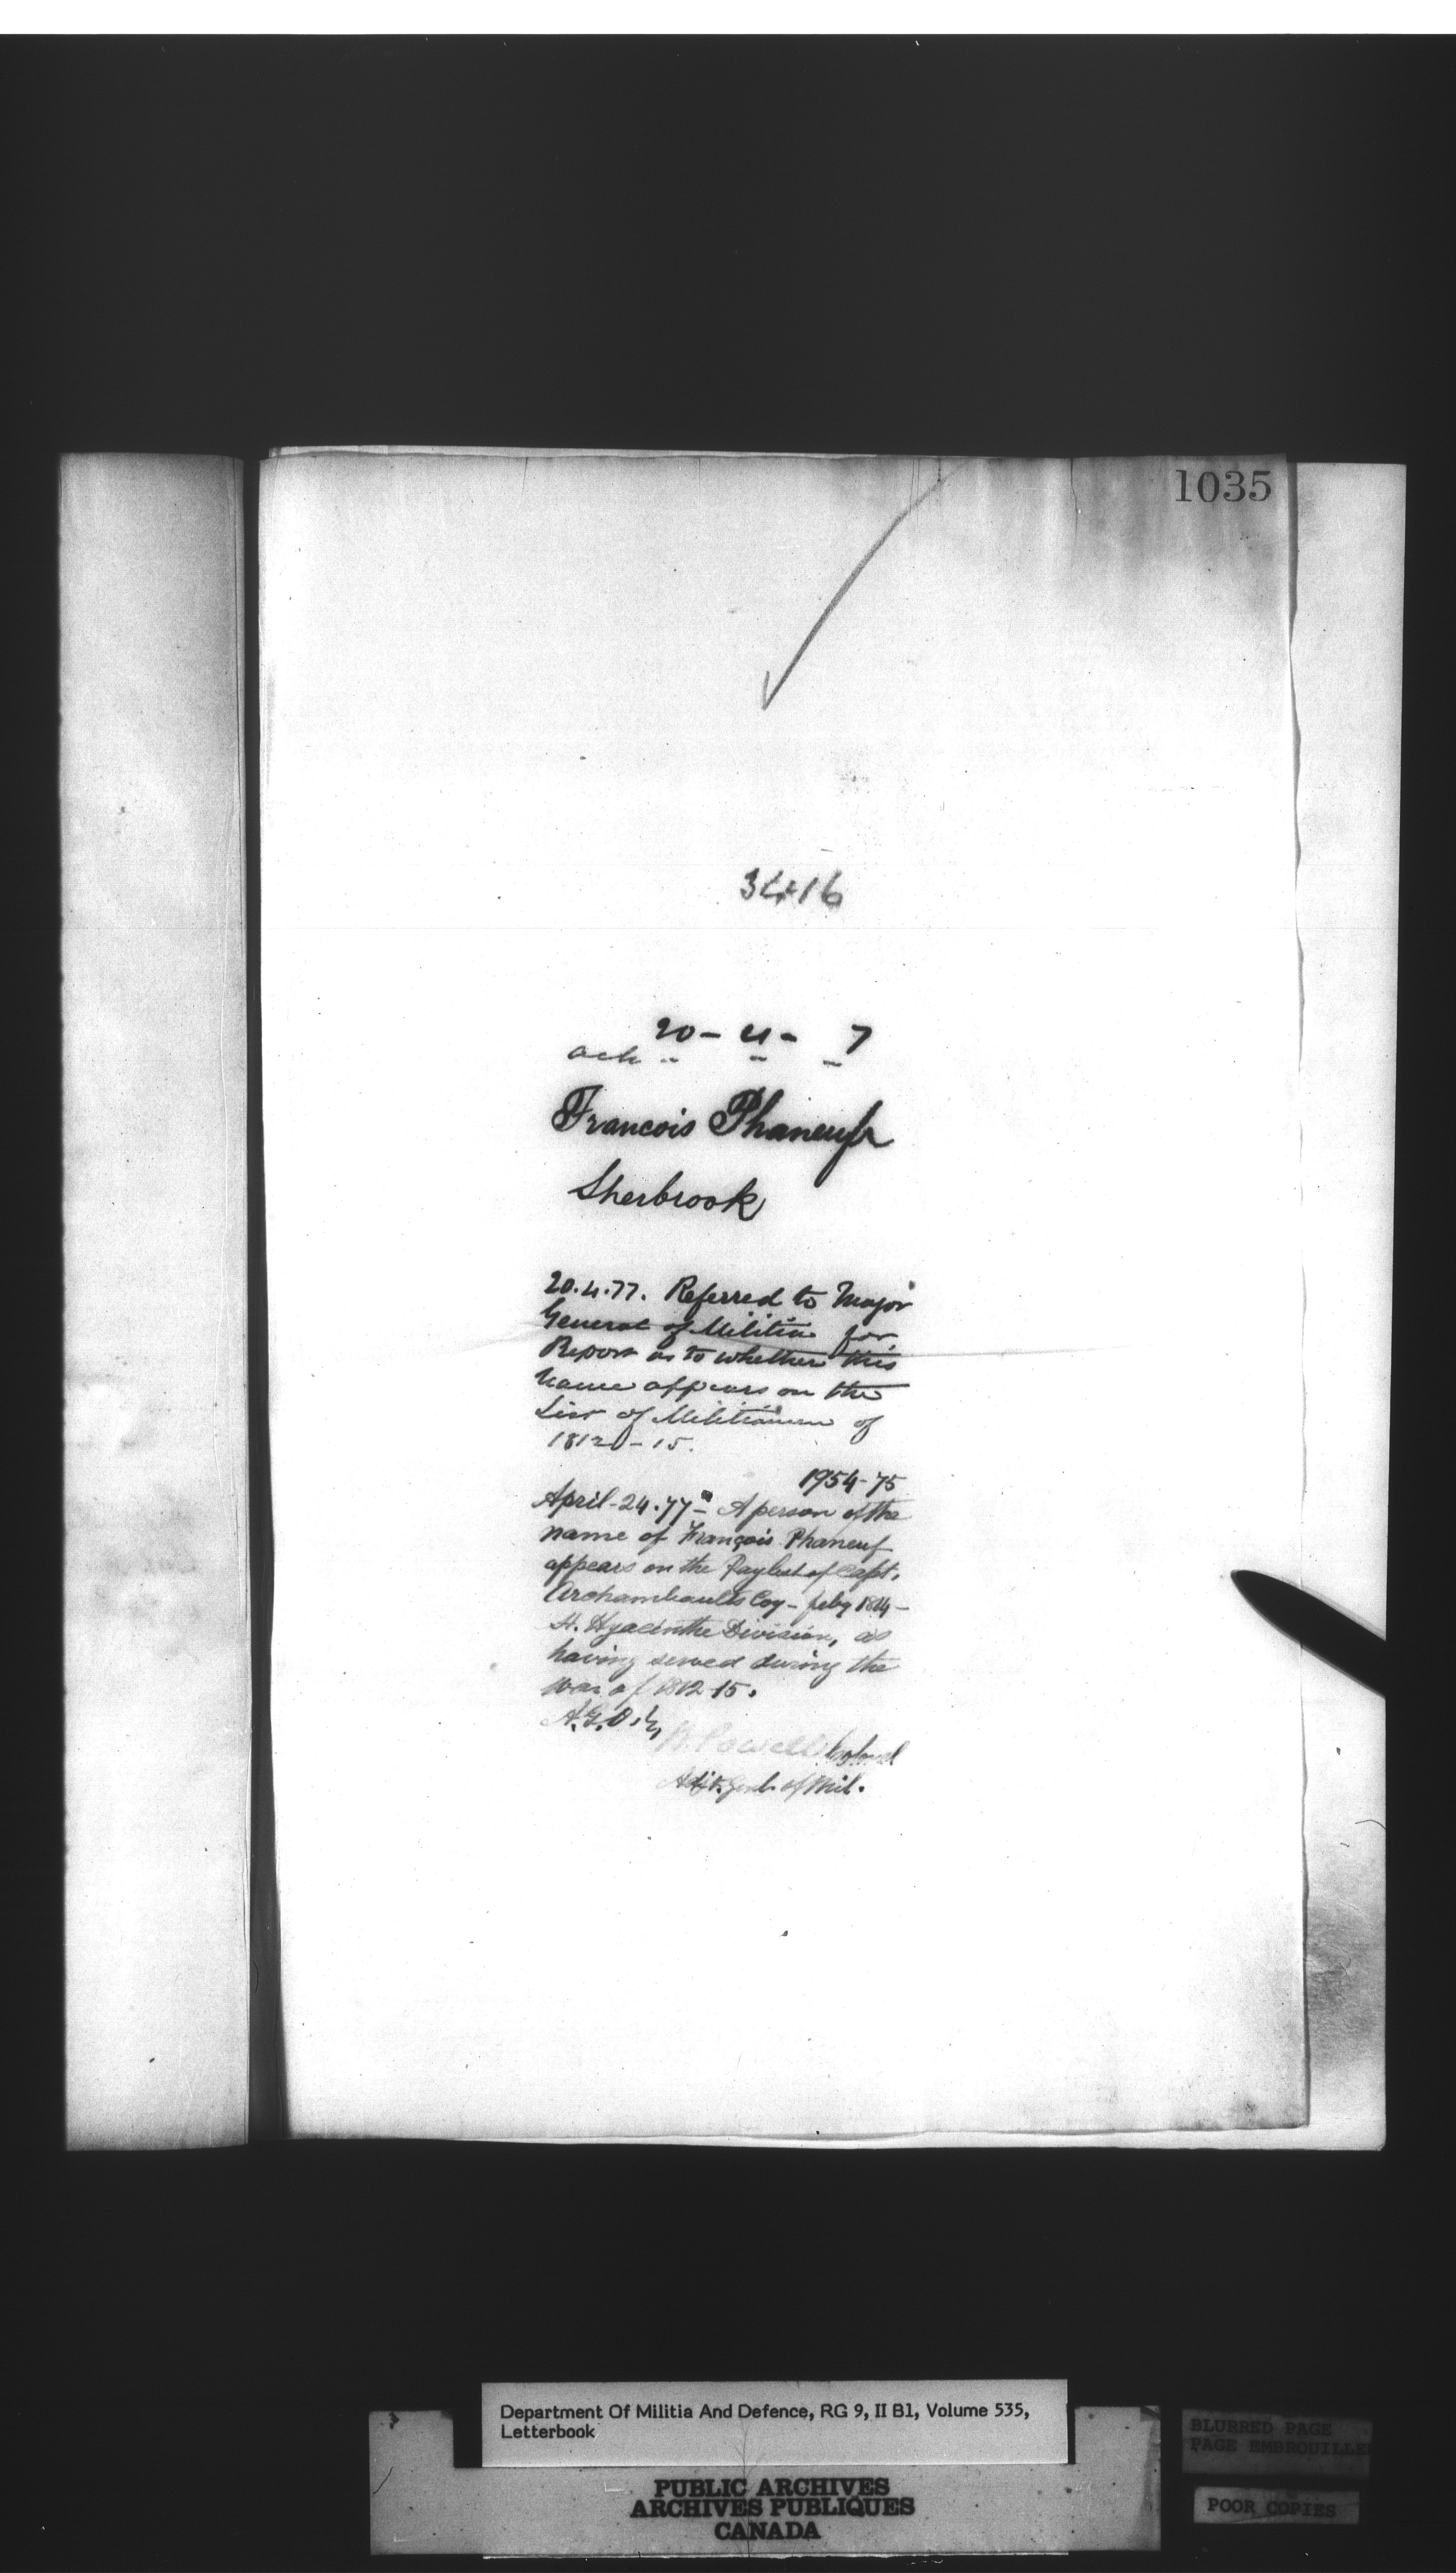 1035
3416
20 - 4 - 7
ack " " "
Francois Phaneuf
Sherbrook
20.4.77. Referred to Major
General of Militia for
Report as to whether this
name appears on the
List of Militiamen of
1812-15.
1954-75
April-24.77- A person of the
name of François Phaneuf
appears on the Paylist of Capt.
Archambaults Coy - feby 1814 -
St. Hyacinthe Division, as
having served during the
war of 1812-15.
A.G.O.
W. Powell Colonel
Adjt. Genl. of Mil.
Department Of Militia And Defence, RG 9, II B1, Volume 535,
Letterbook
PUBLIC ARCHIVES
ARCHIVES PUBLIQUES
CANADA
BLURRED PAGE
PAGE EMBROUILLE
POOR COPIES